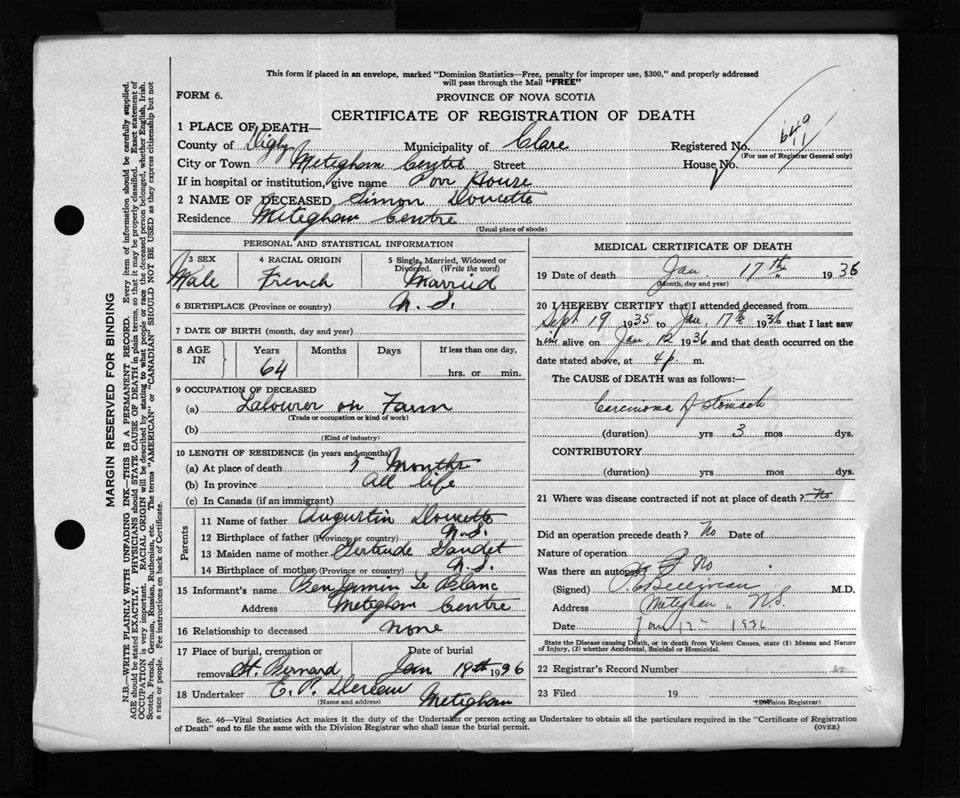 This form if placed in an envelope, marked "Dominion Statistics—Free, penalty for improper use, $300," and properly addressed
will pass through the Mail "FREE"
FORM 6.
PROVINCE OF NOVA SCOTIA
CERTIFICATE OF REGISTRATION OF DEATH
1 PLACE OF DEATH—
County of Digby Municipality of Clare Registered No.
(For use of Registrar General only)
City or Town Meteghan Centre Street House No.
If in hospital or institution, give name Poor House
2 NAME OF DECEASED Simon Doucette
Residence Meteghan Centre
(Usual place of abode)
PERSONAL AND STATISTICAL INFORMATION
3 SEX 4 RACIAL ORIGIN 5 Single, Married, Widowed or Divorced. (Write the word)
Male French Married
6 BIRTHPLACE (Province or country) N.S.
7 DATE OF BIRTH (month, day and year)
8 AGE IN Years Months Days If less than one day,
64 hrs. or min.
9 OCCUPATION OF DECEASED
(a) Labourer on Farm
(Trade or occupation or kind of work)
(b)
(Kind of industry)
10 LENGTH OF RESIDENCE (in years and months)
(a) At place of death 5 Months
(b) In province all life
(c) In Canada (if an immigrant)
Parents
11 Name of father Augustin Doucette
12 Birthplace of father (Province or country) N.S.
13 Maiden name of mother Gertrude Gaudet
14 Birthplace of mother (Province or country) N.S.
15 Informant's name Benjamin Le Blanc
Address Meteghan Centre
16 Relationship to deceased none
17 Place of burial, cremation or removal St. Bernard Date of burial Jan 19th 1936
18 Undertaker Meteghan
(Name and address)
MEDICAL CERTIFICATE OF DEATH
19 Date of death Jan. 17th 1936
(Month, day and year)
20 I HEREBY CERTIFY that I attended deceased from
Sept 19 1935 to Jan. 17th 1936 that I last saw
him alive on Jan. 12 1936 and that death occurred on the
date stated above, at 4 p. m.
The CAUSE of DEATH was as follows:—
Carcinoma of stomach
(duration) yrs 3 mos dys.
CONTRIBUTORY
(duration) yrs mos dys.
21 Where was disease contracted if not at place of death? No
Did an operation precede death? No Date of
Nature of operation
Was there an autopsy? No
(Signed) M.D.
Address Meteghan, N.S.
Date Jan 1936
State the Disease causing Death, or in death from Violent Causes, state (1) Means and Nature
of Injury, (2) whether Accidental, Suicidal or Homicidal.
22 Registrar's Record Number
23 Filed 19
(Division Registrar)
Sec. 46—Vital Statistics Act makes it the duty of the Undertaker or person acting as Undertaker to obtain all the particulars required in the "Certificate of Registration
of Death" and to file the same with the Division Registrar who shall issue the burial permit.
(OVER)
MARGIN RESERVED FOR BINDING
N.B.—WRITE PLAINLY WITH UNFADING INK—THIS IS A PERMANENT RECORD. Every item of information should be carefully supplied.
AGE should be stated EXACTLY. PHYSICIANS should STATE CAUSE OF DEATH in plain terms, so that it may be properly classified. Exact statement of
OCCUPATION is very important. RACIAL ORIGIN will be described by stating to what people or race the deceased person belonged, whether English, Irish,
Scotch, French, German, Russian, Ruthenian, etc. The terms "AMERICAN" or "CANADIAN" SHOULD NOT BE USED as they express citizenship but not
a race or people. See instructions on back of Certificate.